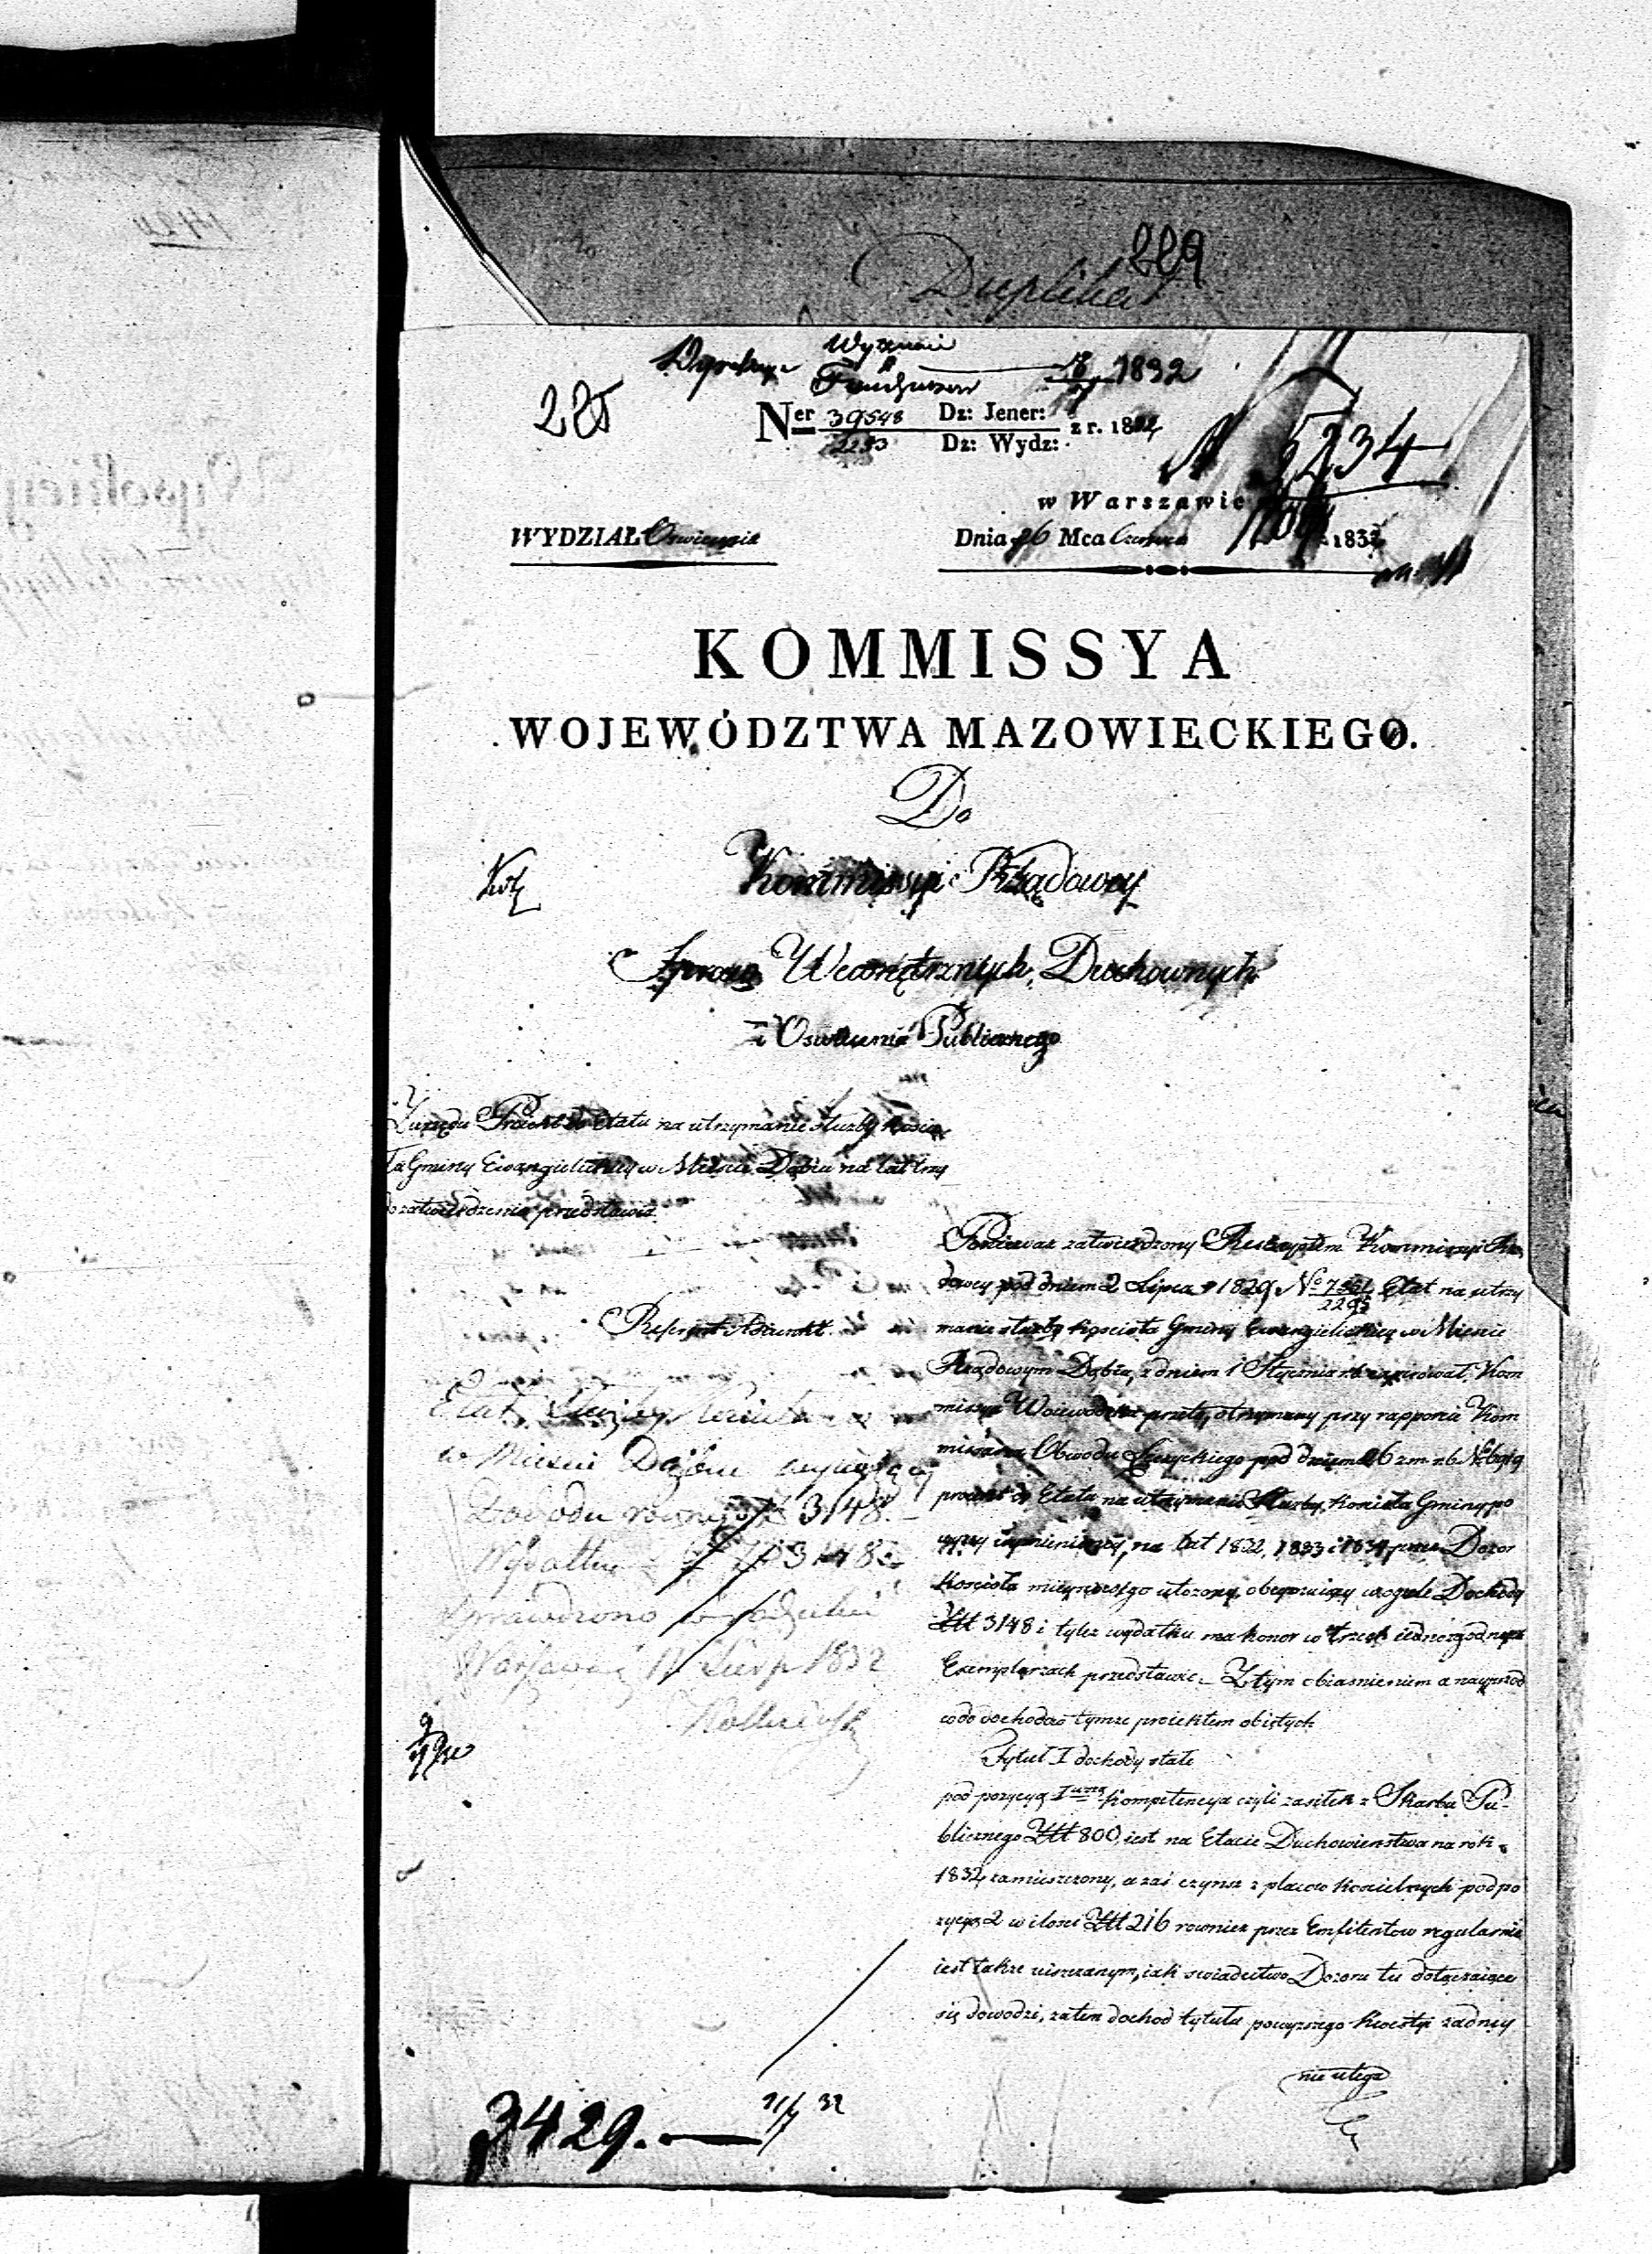 Duplikat
229
Wyznań
Fundusze
18/7 1832
285
Ner 39548 Dz: Jener: z r. 183
2293 Dz: Wydz:
N 5234
w Warszawie
WYDZIAŁ Oswiecenia
Dnia 26 Mca Czerwca 1832
KOMMISSYA
WOJEWÓDZTWA MAZOWIECKIEGO.
Do
Kommissyi Rządowey
Spraw Wewnętrznych, Duchownych
i Oswiecenia Publicznego
Proiekt do Etatu na utrzymanie służby Kościo
ła Gminy Ewangielickiey w Mieście Dąbiu na lat trzy
do zatwierdzenia przedstawia.
Referent Adiunkt.
Etat Służby Kościoła
w Mieście Dąbiu
Dochodu 3148.
Wydatku 3148
Sprawdzono
Warszawa 11 Sierp 1832
Ponieważ zatwierdzony Reskryptem Kommissyi Rzą
dowey pod dniem 2 Lipca 1829 No Etat na utrzy
manie służby Kościoła Gminy Ewangielickiey w Mieście
Rządowym Dąbiu, z dniem 1 Stycznia rb expirował, Kom
missya Woiewodzka przeto, otrzymany przy rapporcie Kom
missarza Obwodu Łęczyckiego pod dniem 26 z m. rb
proiekt do Etatu na utrzymanie Służby Kościoła Gminy po
wyżey wymienioney, na lat 1832, 1833 i 1834 przez Dozor
Kościoła mieyscowego ułożony, obeymuiący wogule Dochodu
Złt 3148 i tyleż wydatku ma honor w trzech iednozgodnych
Exemplarzach przedstawić. Z tym obiaśnieniem a nayprzod
co do dochodów tymże proiektem obiętych
Tytuł I dochody stałe
pod pozycyą 1wszą Kompetencya czyli zasiłek z Skarbu Pu-
blicznego Złt 800, iest na Etacie Duchowieństwa na rok
1832 zamieszczony, a zaś czynsz z placow Kościelnych pod po
zycyą 2 w ilości Złt 216 rownież przez Emfiteutow regularnie
iest także uiszczanym, iak świadectwo Dozoru tu dołączaiące
się dowodzi, zatem dochod tytułu powyższego kwestyi żadney
nie ulega
3429. 21/7 32